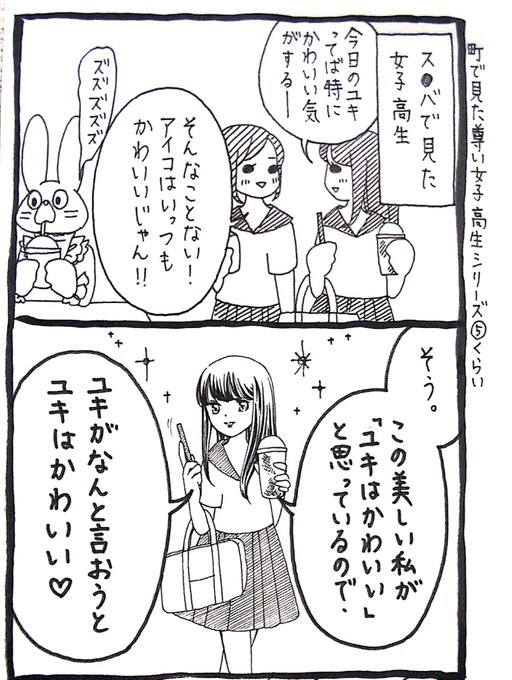 町で見た尊い女子高生シリーズ⑤くらい
ス●バで見た
女子高生
今日のユキ
ってば特に
かわいい気
がするー
そんなことない!
アイコはいっつも
かわいいじゃん!!
ズズズズズ
そう。
この美しい私が
「ユキはかわいい」
と思っているので、
ユキがなんと言おうと
ユキはかわいい♡